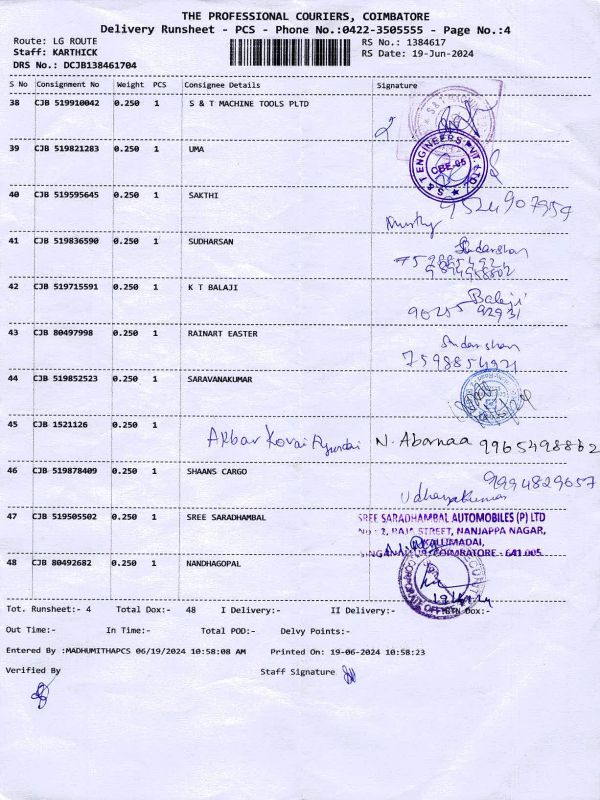 THE PROFESSIONAL COURIERS, COIMBATORE
Delivery Runsheet - PCS - Phone No.:0422-3505555 - Page No.:4
Route: LG ROUTE
RS No.: 1384617
Staff: KARTHICK
RS Date: 19-Jun-2024
DRS No.: DCJB138461704
S No Consignment No Weight PCS Consignee Details Signature
38 CJB 519910042 0.250 1 S & T MACHINE TOOLS PLTD
39 CJB 519821283 0.250 1 UMA
S & T ENGINEERS PVT. LTD. CBE-05
40 CJB 519595645 0.250 1 SAKTHI
9524907954
41 CJB 519836590 0.250 1 SUDHARSAN
Sudarshan
42 CJB 519715591 0.250 1 K T BALAJI
Balaji
43 CJB 80497998 0.250 1 RAINART EASTER
Sudarshan
7598854921
44 CJB 519852523 0.250 1 SARAVANAKUMAR
45 CJB 1521126 0.250 1
Akbar Kovai N. Abarnaa 9965498862
46 CJB 519878409 0.250 1 SHAANS CARGO
9994829657
Udhayakumar
47 CJB 519505502 0.250 1 SREE SARADHAMBAL
SREE SARADHAMBAL AUTOMOBILES (P) LTD
NO : 2, RAJA STREET, NANJAPPA NAGAR,
KALLIMADAI,
SINGANALLUR, COIMBATORE - 641 005.
48 CJB 80492682 0.250 1 NANDHAGOPAL
CORPORATE OFFICE
19/6/24
Tot. Runsheet:- 4 Total Dox:- 48 I Delivery:- II Delivery:- RTN Dox:-
Out Time:- In Time:- Total POD:- Delvy Points:-
Entered By :MADHUMITHAPCS 06/19/2024 10:58:08 AM Printed On: 19-06-2024 10:58:23
Verified By Staff Signature